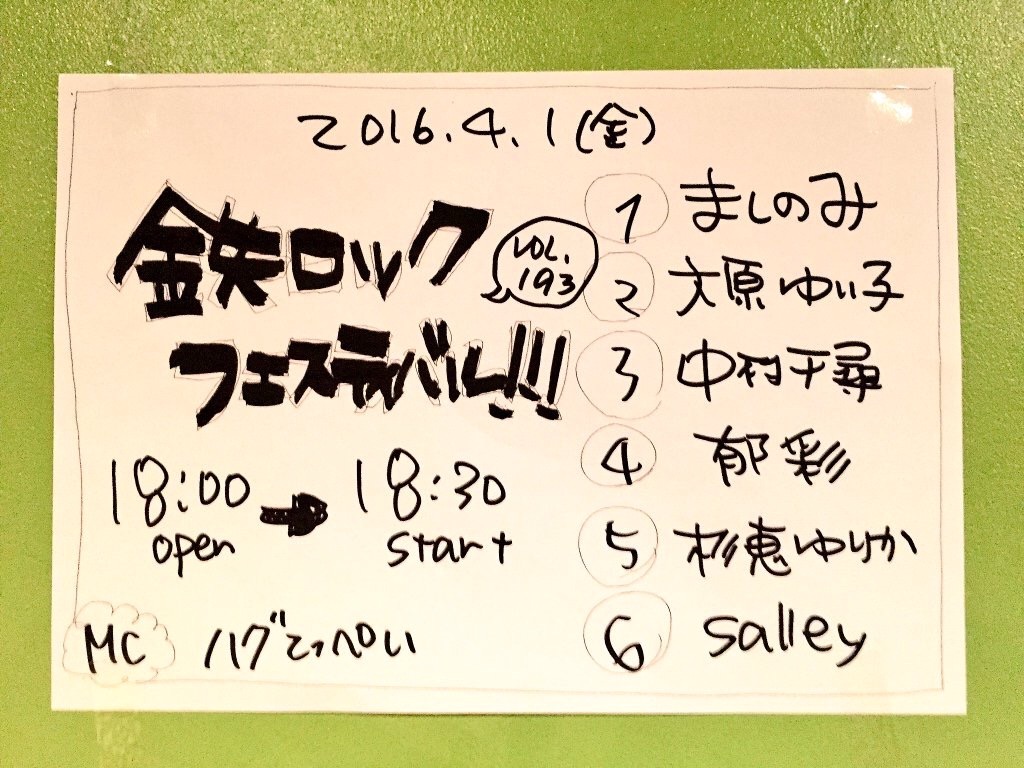 2016.4.1(金)
鉄ロック
フェスティバル!!!
VOL.
193
18:00 ➡ 18:30
open start
MC ハグてっぺい
1 ましのみ
2 大原ゆい子
3 中村千尋
4 郁彩
5 杉恵ゆりか
6 salley